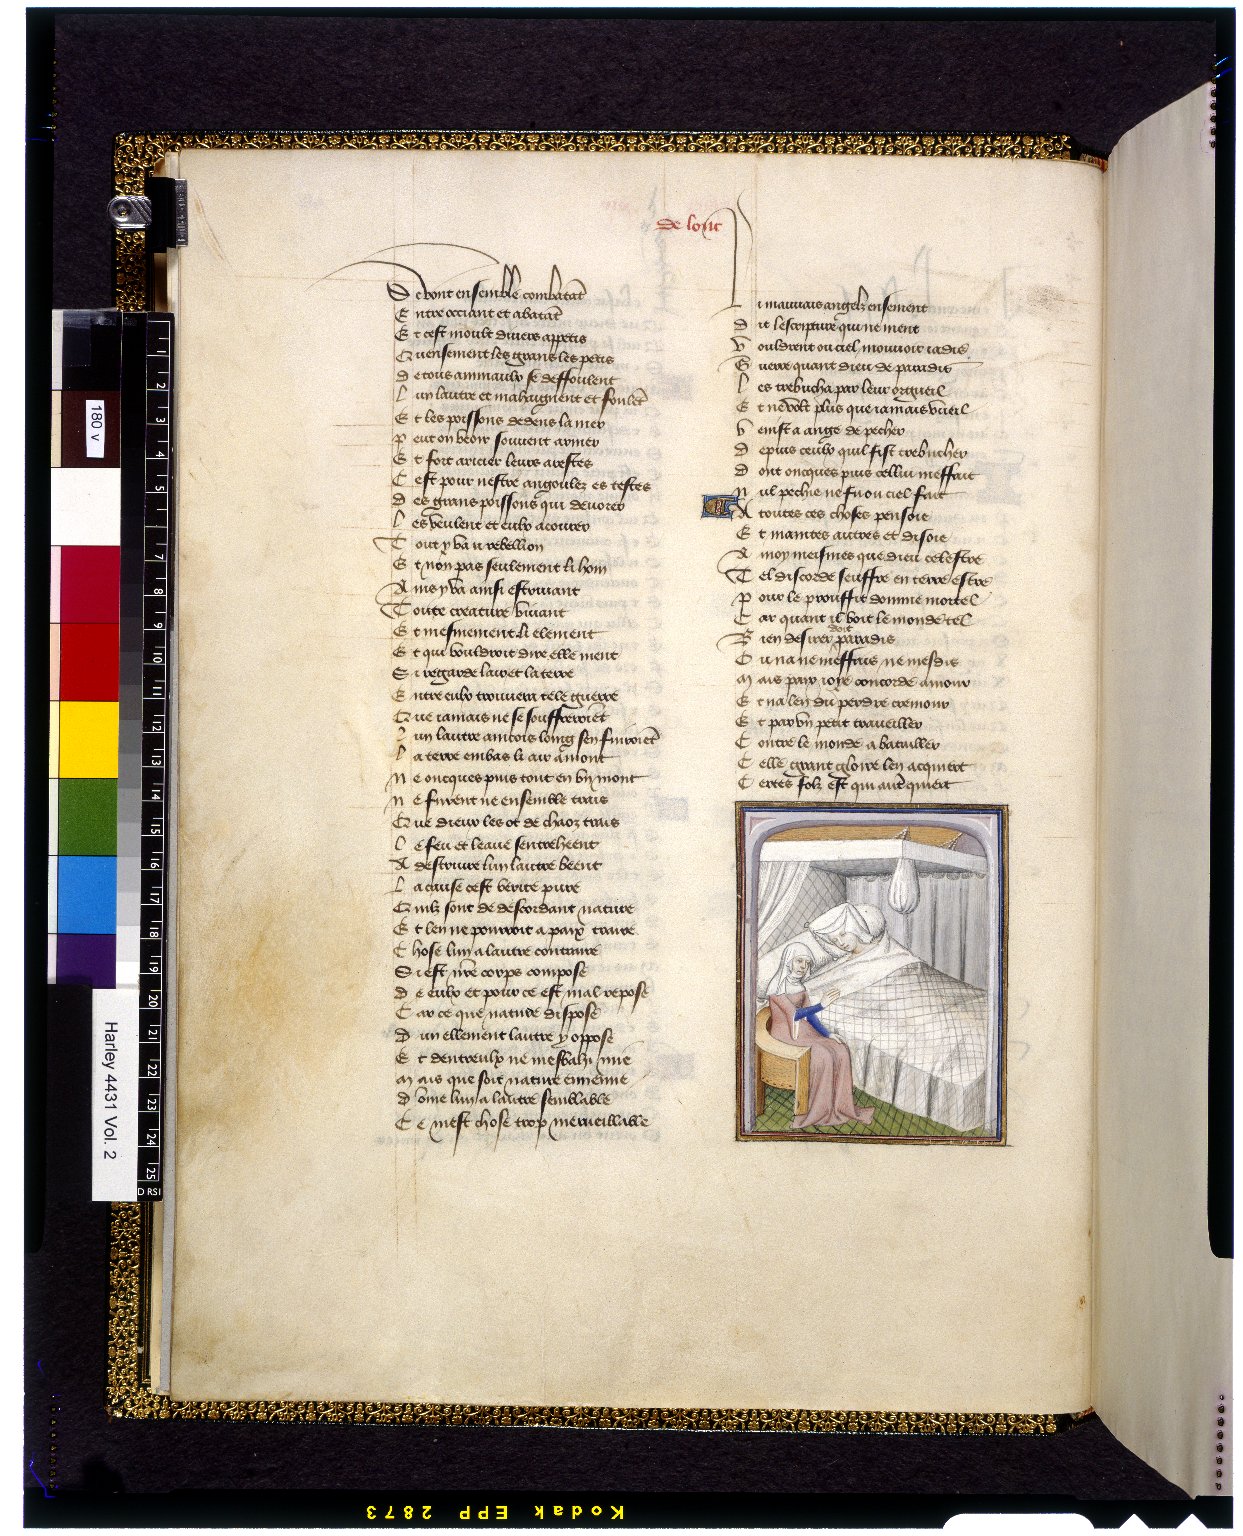 de lont
Se vont ensemble combatat
Entre occiant et abatat
Et cest moult divers appetis
Quensement les grans les petis
De tous annimaulx se deffoulent
Lun lautre et mahaignent et foulēt
Et les poissons dedens la mer
Peut on veoir souvent armer
Et fort aricier leurs arestes
Cest pour nestre angoulez es testes
Des grans poissons qui devorer
Les veulent et eulx acourer
Tout y va u rebellion
Et non pas seulement li hom
Ains y va ainsi estrivant
Toute creature vivant
Et mesmement li element
Et qui vouldroit dire elle ment
Si regarde lair et la terre
Entre eulx trouvera tele guerre
Que jamais ne se souffreroiēt
Lun lautre aincois loing senfuiroiēt
La terre embas li air amont
Ne oncques puis tout en un mont
Ne furent ne ensemble trais
Que dieux les ot de chaoz trais
Le feu et leaue sentreheent
A destruire lun lautre beent
La cause cest verite pure
Quilz sont de descordant nature
Et len ne pourroit a paix traire
Chose lun a lautre contraire
Si est nr̄e corps compose
De eulx et pour ce est mal repose
Car ce que nature dispose
Dun ellement lautre y oppose
Et dentreulx ne mesbahi mie
Mais que soit nature ennemie
Dōme lun a lautre semblable
Ce mest chose trop merveillable
Li mauvais angelz ensement
Dit lescripture qui ne ment
Vouldrent ou ciel mouvoir jadis
Guerre quant dieu de paradis
Les trebucha par leur orgueil
Et ne volt plus que jamais vueil
Venist a ange de pecher
Depuis ceulx quil fist trebucher
Dont oncques puis cellui meffait
Nul pechie ne fu ou ciel fait
A toutes ces choses pensoie
Et maintes autres et disoie
A moy meismes que dieu celestre
Tel discorde seuffre en terre estre
Pour le prouffit domme mortel
Car quant il voit le monde tel
Bien desirer doit paradis
Ou na ne meffais ne mesdis
Mais paix joye concorde amour
Et na len du perdre cremour
Et par un petit traveiller
Contre le monde a batailler
Celle grant gloire len acquiert
Certes folz est qui autre quiert
180 v
Harley 4431 Vol. 2
1
2
3
4
5
7
8
9
10
11
12
13
14
15
16
17
18
19
20
21
22
23
24
25
D RSI
Kodak EPP 2873